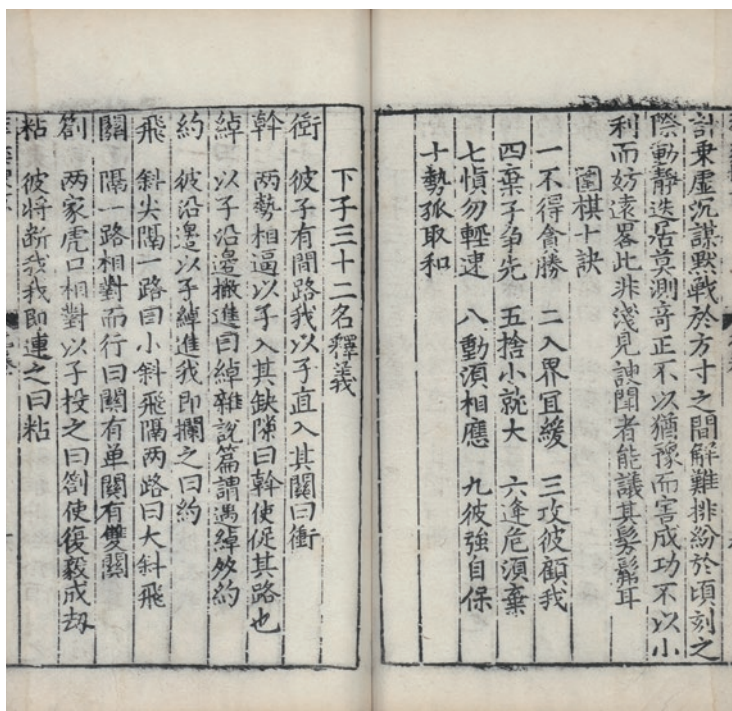 計乘虛沉謀默戰於方寸之間解難排紛於頃刻之
際動靜迭居莫測竒正不以猶豫而害成功不以小
利而妨逺畧此非淺見諛聞者能議其髣髴耳
圍棋十訣
一不得貪勝 二入界冝緩 三攻彼顧我
四棄子爭先 五捨小就大 六逢危須棄
七慎勿輕速 八動須相應 九彼強自保
十勢孤取和
下子三十二名釋義
衝 彼子有間路我以子直入其關曰衝
幹 两勢相逼以子入其缺隙曰幹使促其路也
綽 以子沿邊撇進曰綽雜說篇謂遇綽多約
約 彼沿邊以子綽進我即攔之曰約
飛 斜尖隔一路曰小斜飛隔两路曰大斜飛
關 隔一路相對而行曰關有单關有雙關
劄 两家虎口相對以子投之曰劄使復截成刼
粘 彼将断我我即連之曰粘